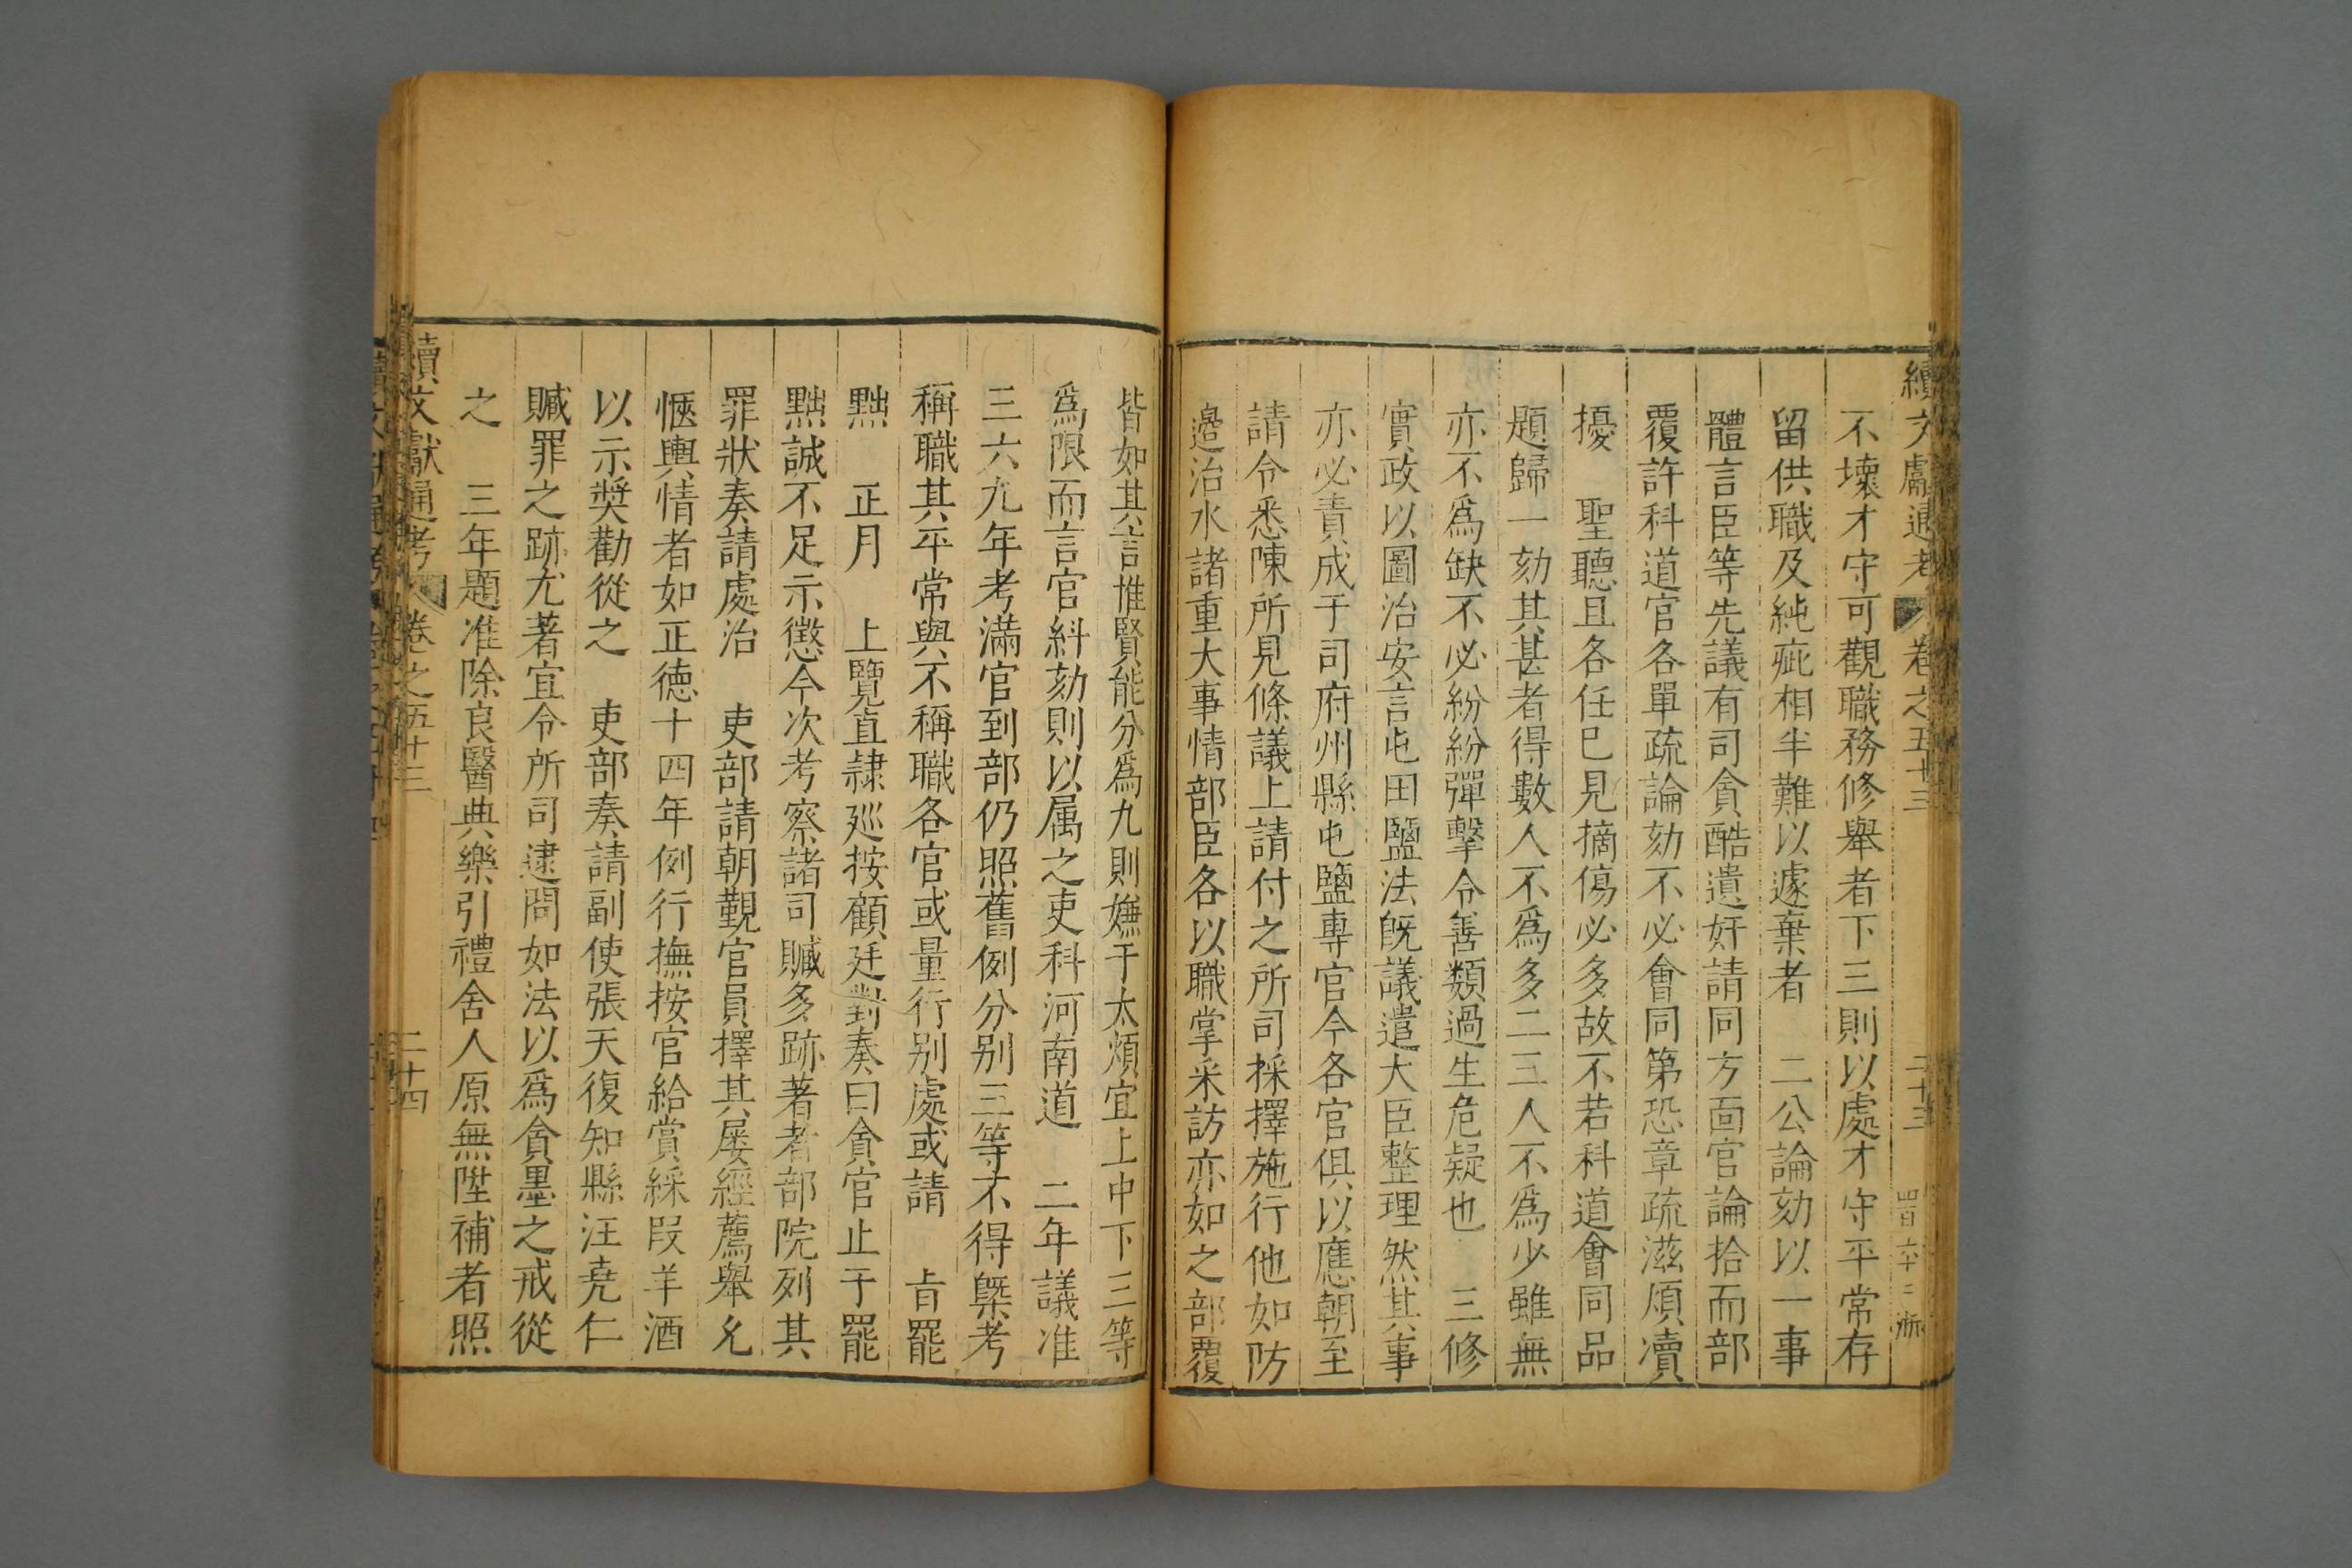 續文獻通考 卷之五十三 二十三 四百六十二 浙
不壞才守可觀職務修舉者下三則以處才守平常存
留供職及純疵相半難以遽棄者 二公論劾以一事
體言臣等先議有司貪酷遺奸請同方面官論拾而部
覆許科道官各單疏論劾不必會同第恐章疏滋煩瀆
擾 聖聽且各任已見摘傷必多故不若科道會同品
題歸一劾其甚者得數人不爲多二三人不爲少雖無
亦不爲缺不必紛紛彈擊令善類過生危疑也 三修
實政以圖治安言屯田鹽法旣議遣大臣整理然其事
亦必責成于司府州縣屯鹽專官今各官俱以應朝至
請令悉陳所見條議上請付之所司採擇施行他如防
邊治水諸重大事情部臣各以職掌采訪亦如之部覆
皆如其言惟賢能分爲九則嫌于太煩宜上中下三等
爲限而言官糾劾則以属之吏科河南道 二年議准
三六九年考滿官到部仍照舊例分别三等不得槩考
稱職其平常與不稱職各官或量行别處或請 旨罷
黜 正月 上覽直隷廵按顧廷對奏曰貪官止于罷
黜誠不足示懲今次考察諸司贓多跡著者部院列其
罪狀奏請處治 吏部請朝覲官員擇其屡經薦舉允
愜輿情者如正徳十四年例行撫按官給賞綵叚羊酒
以示奬勸從之 吏部奏請副使張天復知縣汪尭仁
贓罪之跡尤著宜令所司逮問如法以爲貪墨之戒從
之 三年題准除良醫典樂引禮舍人原無陞補者照
續文獻通考 卷之五十三 二十四